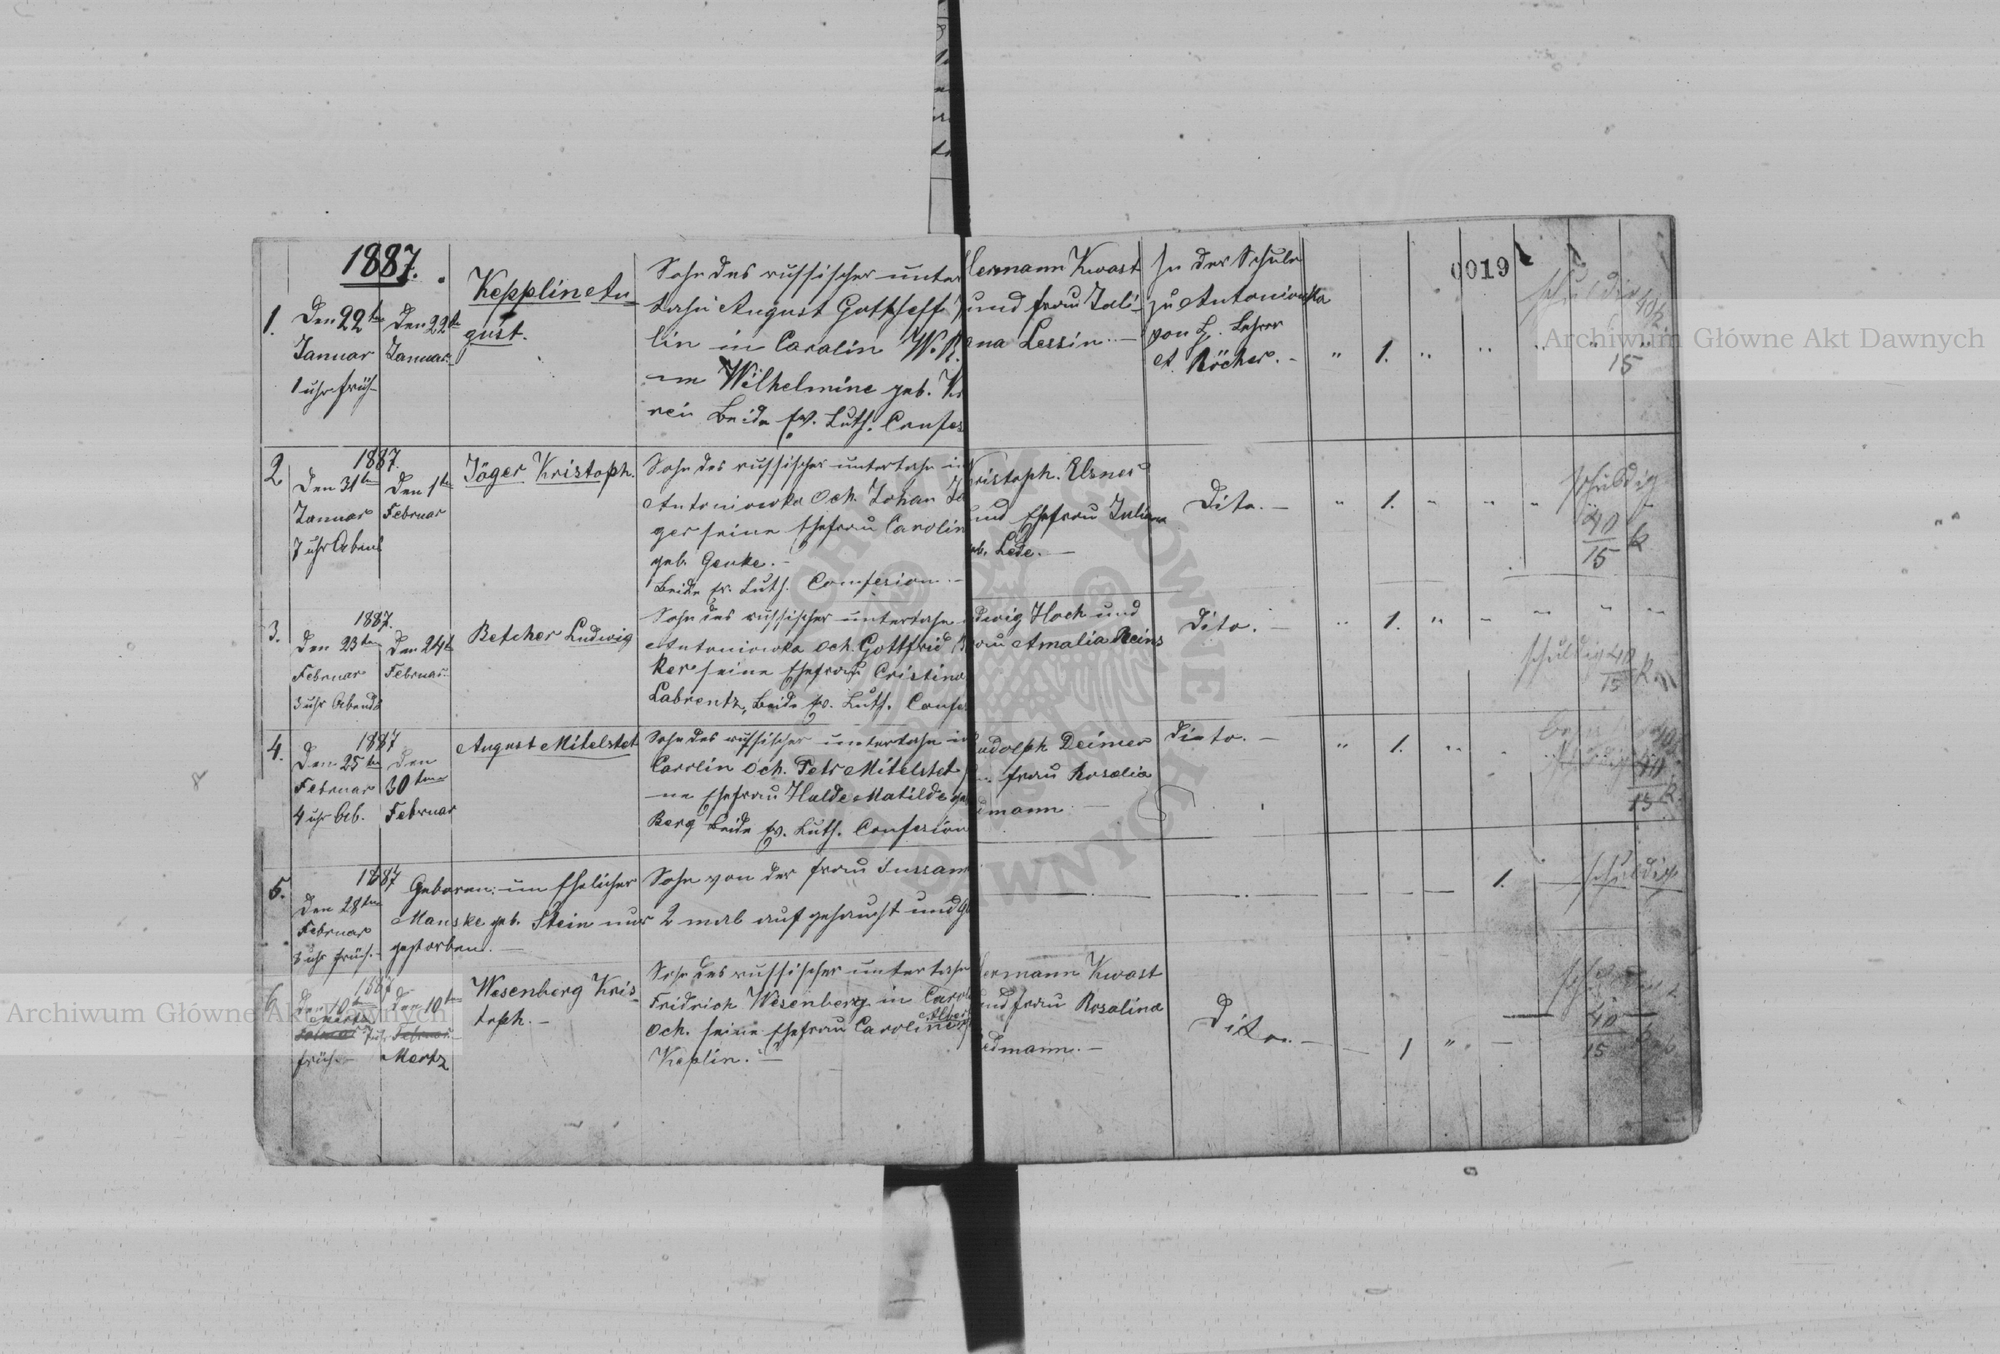 1887.
0019
1.
Den 22ten
Januar
1 uhr früh
Den 22ten
Januar
Kepplin Au-
gust.
Sohn des russischer unter
tahn August Gotthelf
lin in Carolin W. R.
ne Wilhelmine geb.
rein Beide Ev. Luth. Confes
Hermann Kwast
und frau Juli-
ana Lessin. —
In der Schule
zu Antoniowka
von H. Lehrer
A. Röcher. —
" 1. " " " " "
schuldig 40 k.
15
2
1887.
Den 31ten
Januar
7 uhr Abend
Den 1ten
Februar
Jäger Kristoph.
Sohn des russischer untertahn in
Antoniowka Och. Johan Jä
ger seine Ehefrau Carolin
geb. Genke. —
Beide Ev. Luth. Confesion. —
Kristoph. Elsner
und Ehefrau Juliana
geb. Lede. —
Dito. —
" 1. " " "
schuldig
40
15 k
3.
1887.
Den 23ten
Februar
3 uhr Abends
Den 24t
Februar
Betcher Ludwig
Sohn des russischer untertahn
Antoniowka Och. Gottfrid
ker seine Ehefrau Cristina
Labrentz, Beide Ev. Luth. Confes
Ludwig Hoch und
frau Amalia Reins
Dito. —
" 1. " " " " "
schuldig 40
15 k
4.
1887
Den 25ten
Februar
4 uhr Ab.
Den
30ten
Februar
August Mitelstet
Sohn des russischer untertahn in
Carolin Och. Petr Mitelstet
ne Ehefrau Hulde Matilde
Berg Beide Ev. Luth. Confesion
Rudolph Deimer
frau Rosalia
mann. —
Dito. —
" 1. " "
40
15 k
5.
1887
Den 28ten
Februar
3 uhr früh. —
Geboren: un Ehelicher Sohn von der frau Sussan
Manske geb. Stein nur 2 mal auf gehaucht und
gestorben. —
1.
schuldig
6
1887
Den 10t
Mertz
Februar 7 uhr
früh. —
Den 10ten
Februar
Mertz
Wesenberg Kris-
toph. —
Sohn des russischer untertahn
Fridrich Wesenberg in Carol
Och. seine Ehefrau Caroline
Keplin. —
Hermann Kwast
und frau Rosalina
edmann. —
Dito. —
1 "
40
15 k
Archiwum Główne Akt Dawnych
Archiwum Główne Akt Dawnych